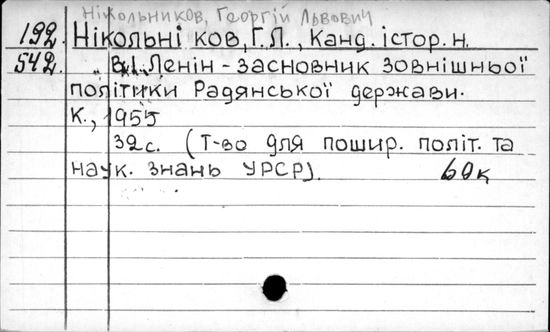 Нікольників, Георгій Львович
192. Нікольні ков, Г.Л., Канд. істор. н.
542. В.І. Ленін - засновник зовнішньої
політики Радянської держави.
К., 1955
32с. (Т-во для пошир. політ. та
наук. знань УРСР).
60к